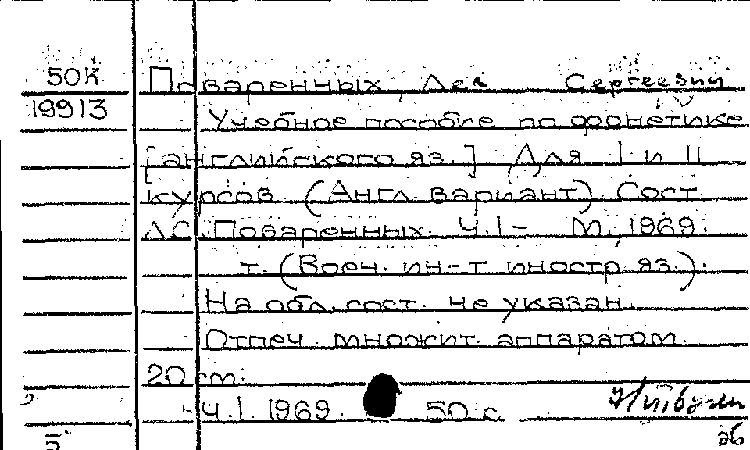 50К Поваренных, Лев Сергеевич
19913 Учебное пособие по фонетике
[английского яз.] Для I и II
курсов (Англ. вариант) Сост.
Л.С. Поваренных. Ч.1- М., 1969.
т. (Воен. ин-т иностр. яз.).
На обл. сост. не указан.
Отпеч. множит. аппаратом.
20 см.
Ч.1. 1969. 50 с.